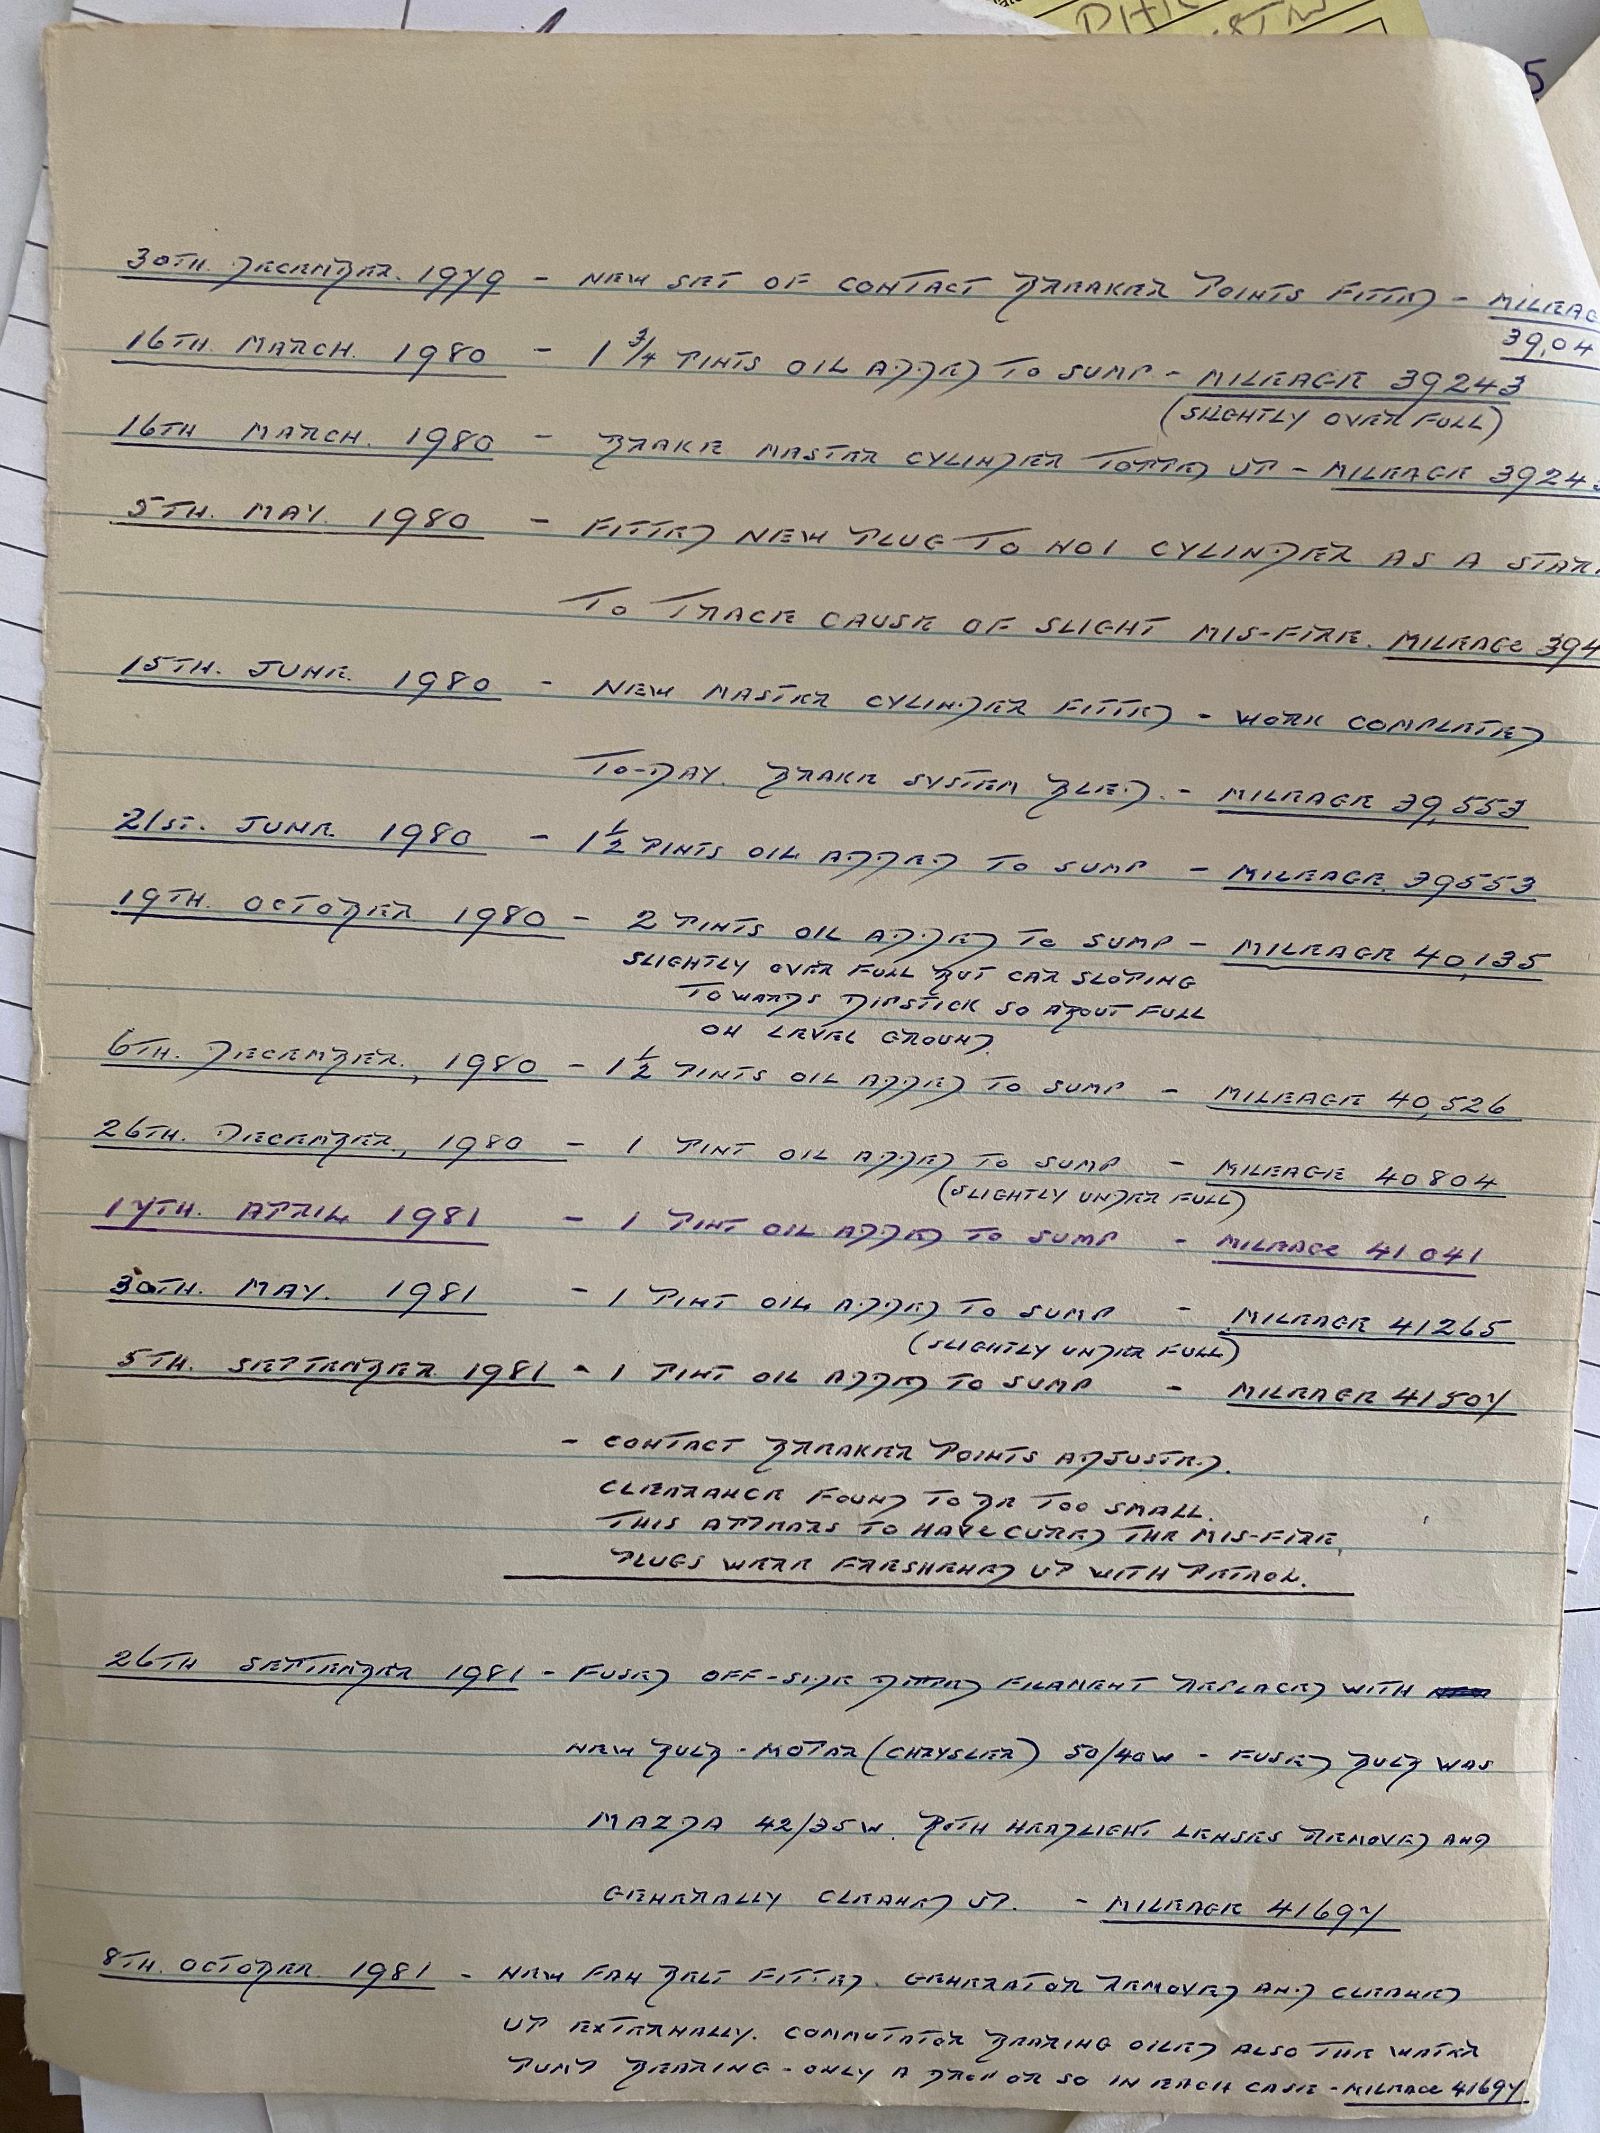 30TH. DECEMBER. 1979 - NEW SET OF CONTACT BREAKER POINTS FITTED - MILEAG
39,04
16TH. MARCH. 1980 - 1 3/4 PINTS OIL ADDED TO SUMP - MILEAGE 39243
(SLIGHTLY OVER FULL)
16TH MARCH. 1980 - BRAKE MASTER CYLINDER TOPPED UP - MILEAGE 3924
5TH. MAY. 1980 - FITTED NEW PLUG TO NO1 CYLINDER AS A START
TO TRACE CAUSE OF SLIGHT MIS-FIRE. MILEAGE 394
15TH. JUNE. 1980 - NEW MASTER CYLINDER FITTED - WORK COMPLETED
TO-DAY. BRAKE SYSTEM BLED. - MILEAGE 39,553
21ST. JUNE. 1980 - 1 1/2 PINTS OIL ADDED TO SUMP - MILEAGE. 39553
19TH. OCTOBER 1980 - 2 PINTS OIL ADDED TO SUMP - MILEAGE 40,135
SLIGHTLY OVER FULL BUT CAR SLOPING
TOWARDS DIPSTICK SO ABOUT FULL
ON LEVEL GROUND.
6TH. DECEMBER, 1980 - 1 1/2 PINTS OIL ADDED TO SUMP - MILEAGE 40,526
26TH. DECEMBER, 1980 - 1 PINT OIL ADDED TO SUMP - MILEAGE 40804
(SLIGHTLY UNDER FULL)
17TH. APRIL 1981 - 1 PINT OIL ADDED TO SUMP - MILEAGE 41041
30TH. MAY. 1981 - 1 PINT OIL ADDED TO SUMP - MILEAGE 41265
(SLIGHTLY UNDER FULL)
5TH. SEPTEMBER 1981 - 1 PINT OIL ADDED TO SUMP - MILEAGE 41507
- CONTACT BREAKER POINTS ADJUSTED.
CLEARANCE FOUND TO BE TOO SMALL.
THIS APPEARS TO HAVE CURED THE MIS-FIRE,
PLUGS WERE FRESHENED UP WITH PETROL.
26TH SEPTEMBER 1981 - FUSED OFF-SIDE DIPPED FILAMENT REPLACED WITH
NEW BULB - MOPAR (CHRYSLER) 50/40W - FUSED BULB WAS
MAZDA 42/35W. BOTH HEADLIGHT LENSES REMOVED AND
GENERALLY CLEANED UP. - MILEAGE 41697
8TH. OCTOBER 1981 - NEW FAN BELT FITTED. GENERATOR REMOVED AND CLEANED
UP EXTERNALLY. COMMUTATOR BEARING OILED ALSO THE WATER
PUMP BEARING - ONLY A DROP OR SO IN EACH CASE - MILEAGE 41697